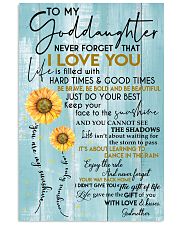 TO MY
Goddaughter
NEVER FORGET THAT
I LOVE YOU
Life is filled with
HARD TIMES & GOOD TIMES
BE BRAVE, BE BOLD AND BE BEAUTIFUL
JUST DO YOUR BEST
Keep your
face to the sunshine
AND YOU CANNOT SEE
THE SHADOWS
Life isn't about waiting for
the storm to pass
IT'S ABOUT LEARNING TO
DANCE IN THE RAIN
Enjoy the ride
And never forget
YOUR WAY BACK HOME
I DIDN'T GIVE YOU The gift of life
Life gave me the GIFT OF YOU
WITH LOVE & kisses
Godmother
You are my sunshine